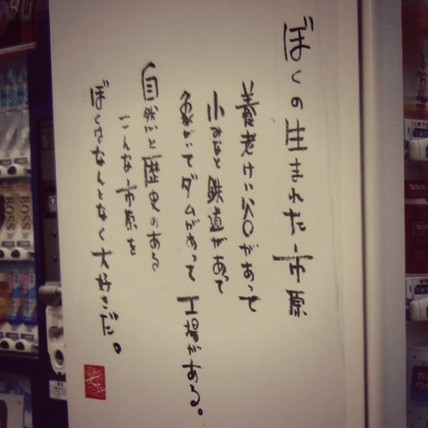 ぼくの生まれた市原
養老けい谷があって
小みなと鉄道があって
ダムがあって 工場がある。
自然と歴史のあって
こんな市原を
ぼくはなんとなく大好きだ。
BOSS
BOSS